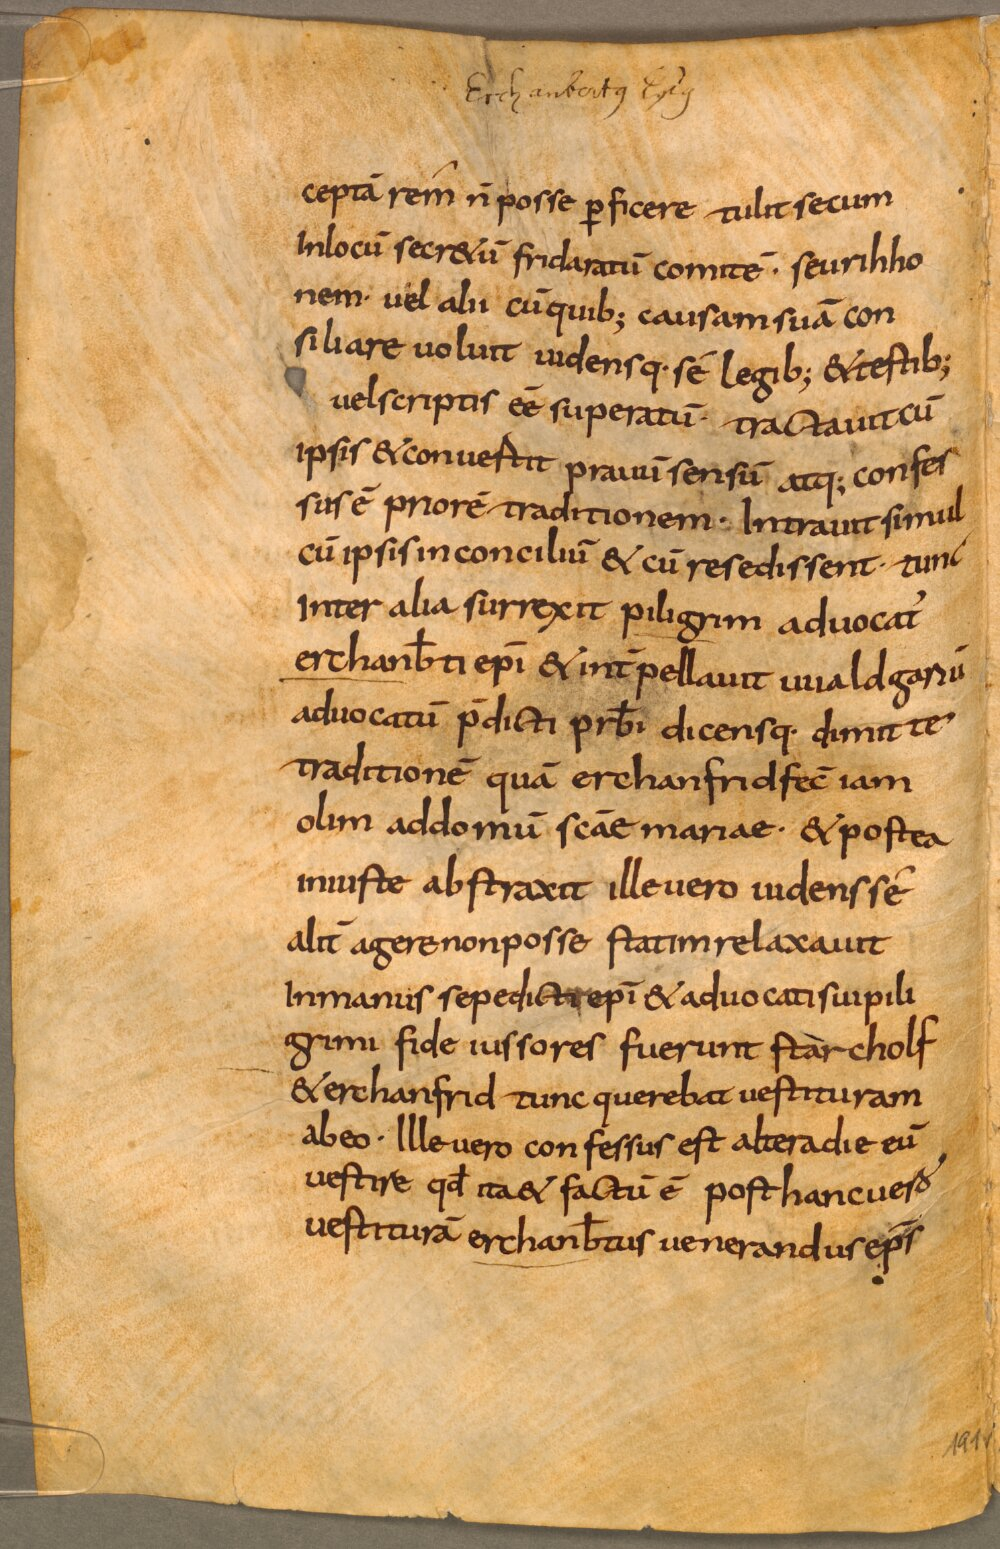 Erchanbertꝰ Epꝰs
ceptā rem̄ n̄ posse ꝑficere tulit secum
Inlocū secr&ū fridaratū comitē · seu rihho
nem · uel alii cū quib; causam suā con
siliare uoluit uidensq · sē legib; & testib;
uel scriptis eē superatū · tractauit cū
ipsis & conuestit prauū sensū atq; confes
sus ē priorē traditionem · Intrauit simul
cū ipsis in conciliū & cū resedissent · tunc
Inter alia surrexit piligrim aduocat᾽
erchanb̄ti ep̄i & int̄pellauit uualdgariū
aduocatū p̄dicti prb̄i dicensq · dimitte
traditionē quā erchanfrid fec̄ iam
olim ad domū sc̄ae mariae · & postea
iniuste abstraxit ille uero uidens sē
alit̄ agere non posse statim relaxauit
In manus sepedicti ep̄i & aduocati sui pili
grimi fideiussores fuerunt starcholf
& erchanfrid tunc querebat uestituram
ab eo · Ille uero confessus est altera die eū
uestire qd̄ ita & factū ē post hanc uero
uestiturā erchanb̄tus uenerandus ep̄s
191v